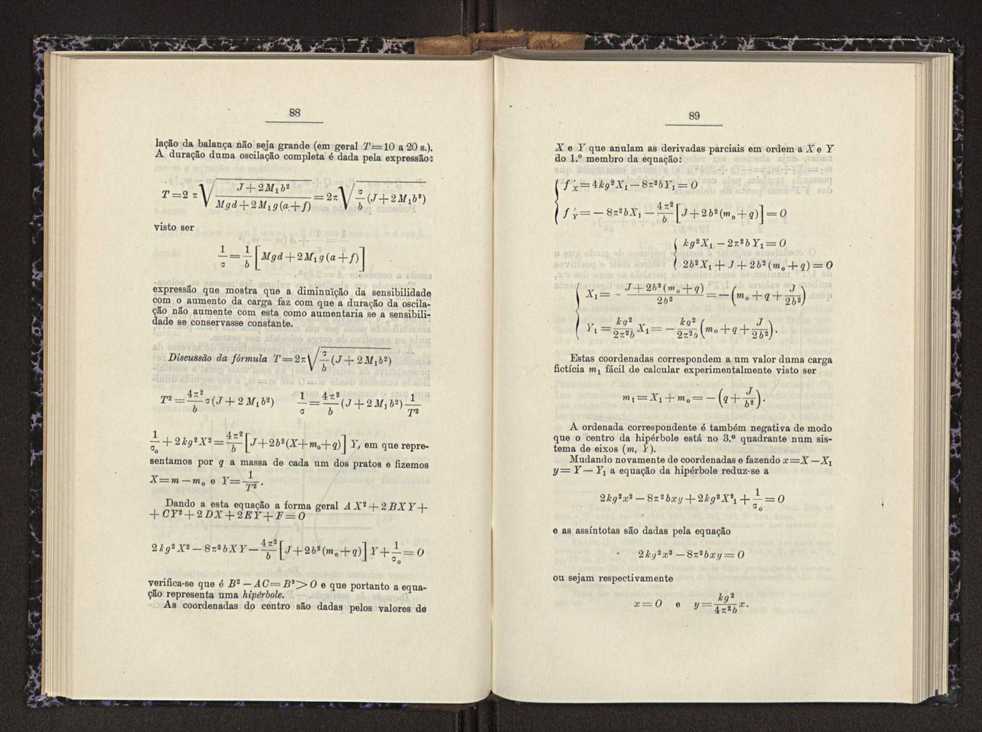 88
lação da balança não seja grande (em geral T=10 a 20 s.).
A duração duma oscilação completa é dada pela expressão:
T=2π√((J+2M₁b²)/(Mgd+2M₁g(a+f)))=2π√(σ/b (J+2M₁b²))
visto ser
1/σ=1/b[Mgd+2M₁g(a+f)]
expressão que mostra que a diminuïção da sensibilidade
com o aumento da carga faz com que a duração da oscila-
ção não aumente com esta como aumentaria se a sensibili-
dade se conservasse constante.
Discussão da fórmula T=2π√(σ/b (J+2M₁b²))
T²=4π²/b σ(J+2M₁b²) 1/σ=4π²/b (J+2M₁b²) 1/T²
1/σ₀+2kg²X²=4π²/b[J+2b²(X+m₀+q)]Y, em que repre-
sentamos por q a massa de cada um dos pratos e fizemos
X=m−m₀ e Y=1/T².
Dando a esta equação a forma geral AX²+2BXY+
+CY²+2DX+2EY+F=O
2kg²X²−8π²bXY−4π²/b[J+2b²(m₀+q)]Y+1/σ₀=O
verifica-se que é B²−AC=B²>O e que portanto a equa-
ção representa uma hipérbole.
As coordenadas do centro são dadas pelos valores de
89
X e Y que anulam as derivadas parciais em ordem a X e Y
do 1.º membro da equação:
f′X=4kg²X₁−8π²bY₁=O
f′Y=−8π²bX₁−4π²/b[J+2b²(m₀+q)]=O
kg²X₁−2π²bY₁=O
2b²X₁+J+2b²(m₀+q)=O
X₁=-(J+2b²(m₀+q))/2b²=−(m₀+q+J/2b²)
Y₁=kg²/2π²b X₁=−kg²/2π²b(m₀+q+J/2b²).
Estas coordenadas correspondem a um valor duma carga
fictícia m₁ fácil de calcular experimentalmente visto ser
m₁=X₁+m₀=−(q+J/b²).
A ordenada correspondente é também negativa de modo
que o centro da hipérbole está no 3.º quadrante num sis-
tema de eixos (m, Y).
Mudando novamente de coordenadas e fazendo x=X−X₁
y=Y−Y₁ a equação da hipérbole reduz-se a
2kg²x²−8π²bxy+2kg²X²₁+1/σ₀=O
e as assíntotas são dadas pela equação
2kg²x²−8π²bxy=O
ou sejam respectivamente
x=O e y=kg²/4π²b x.